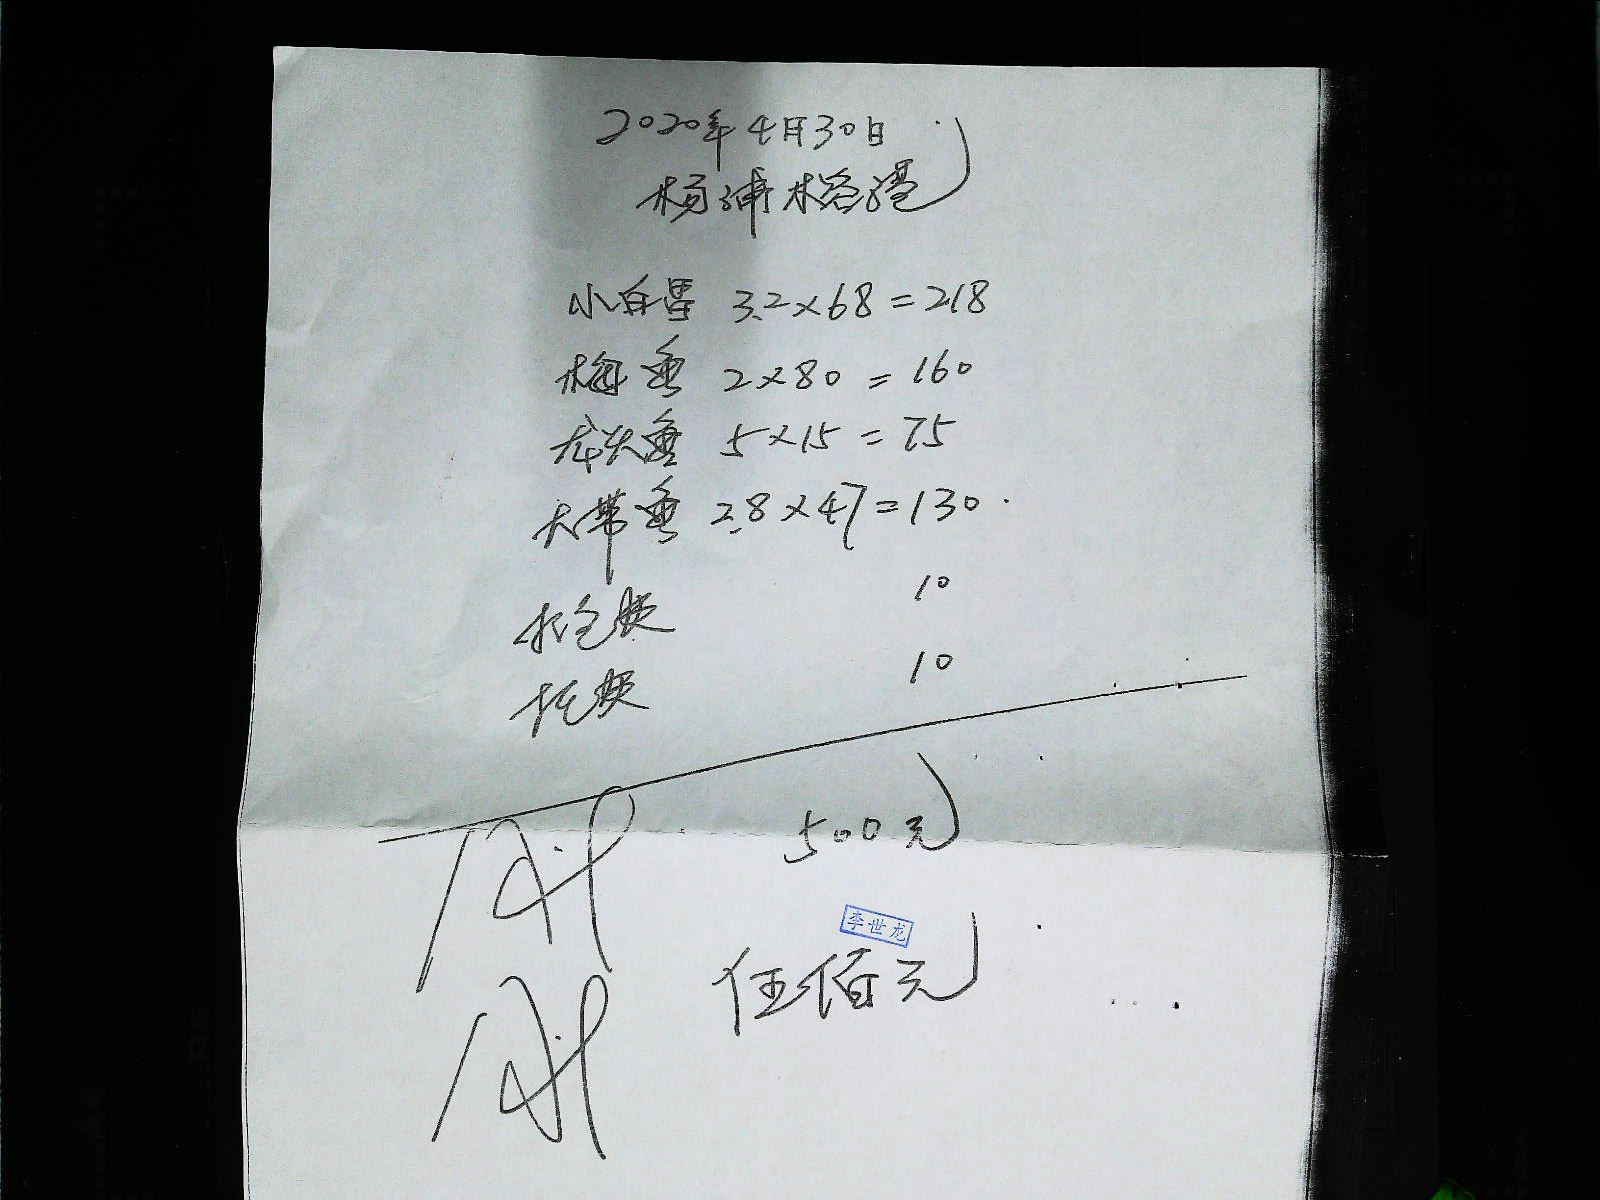 2020年4月30日
杨浦榕港
小白昌 3.2×68=218
梅鱼 2×80=160
龙头鱼 5×15=75
大带鱼 2.8×47=130
打包费 10
托费 10
500元
李世龙
伍佰元